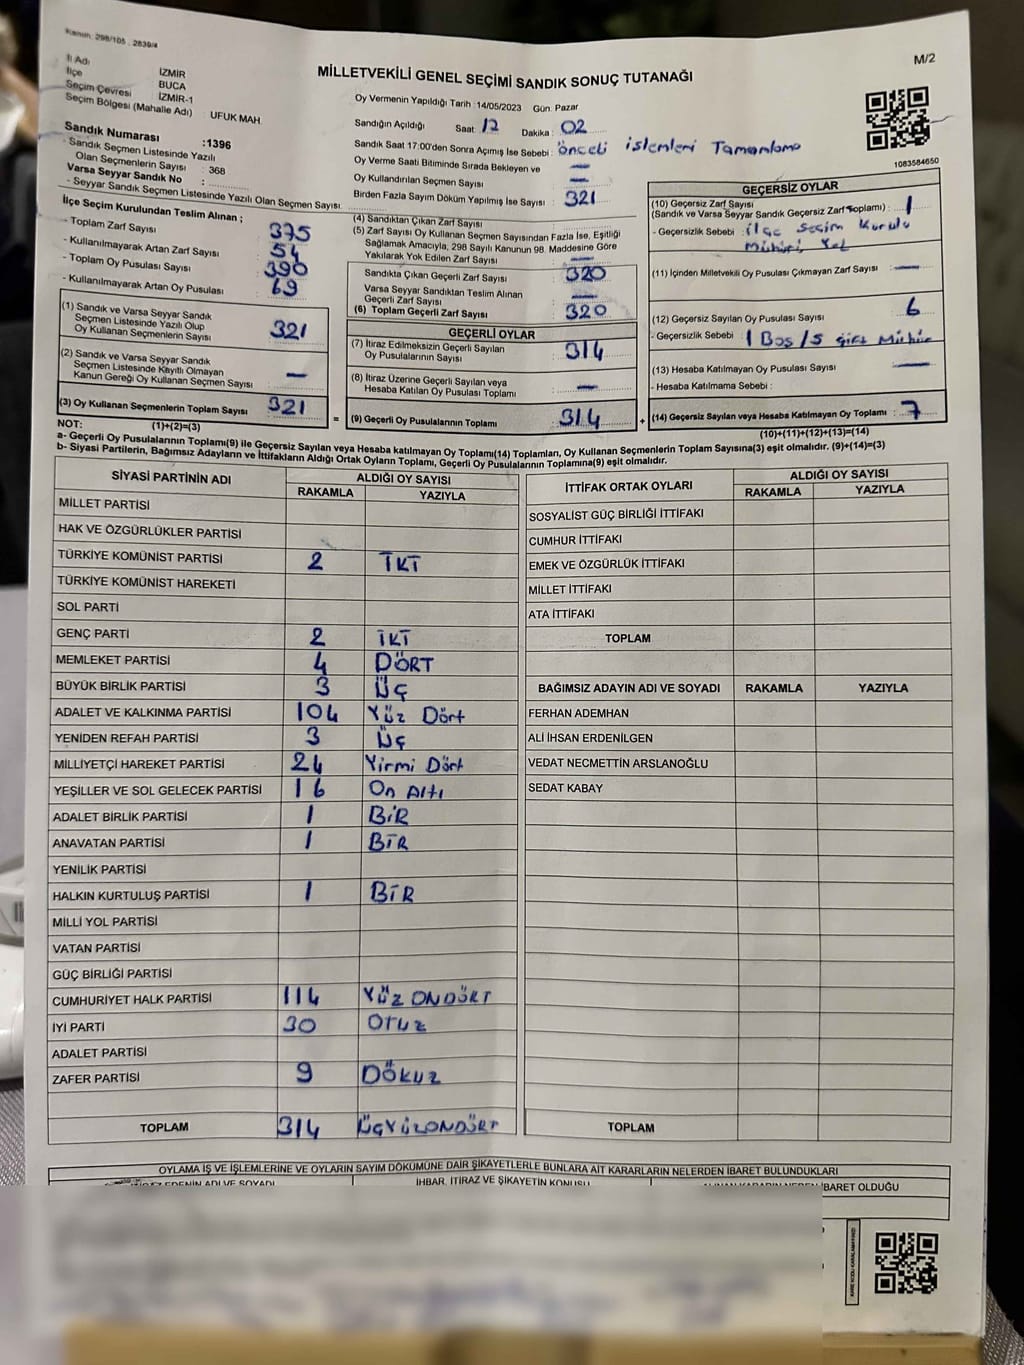 Kanun, 298/105 , 2839/4
M/2
MİLLETVEKİLİ GENEL SEÇİMİ SANDIK SONUÇ TUTANAĞI
İl Adı İZMİR
İlçe BUCA
Seçim Çevresi İZMİR-1
Seçim Bölgesi (Mahalle Adı) : UFUK MAH.
Sandık Numarası :1396
- Sandık Seçmen Listesinde Yazılı
Olan Seçmenlerin Sayısı : 368
Varsa Seyyar Sandık No :
- Seyyar Sandık Seçmen Listesinde Yazılı Olan Seçmen Sayısı
İlçe Seçim Kurulundan Teslim Alınan ;
- Toplam Zarf Sayısı 375
- Kullanılmayarak Artan Zarf Sayısı 54
- Toplam Oy Pusulası Sayısı 390
- Kullanılmayarak Artan Oy Pusulası 69
(1) Sandık ve Varsa Seyyar Sandık
Seçmen Listesinde Yazılı Olup
Oy Kullanan Seçmenlerin Sayısı 321
(2) Sandık ve Varsa Seyyar Sandık
Seçmen Listesinde Kayıtlı Olmayan
Kanun Gereği Oy Kullanan Seçmen Sayısı —
(3) Oy Kullanan Seçmenlerin Toplam Sayısı 321
Oy Vermenin Yapıldığı Tarih : 14/05/2023 Gün: Pazar
Sandığın Açıldığı Saat: 17 Dakika: 02
Sandık Saat 17:00'den Sonra Açımış İse Sebebi : önceli işlemleri Tamamlama
Oy Verme Saati Bitiminde Sırada Bekleyen ve —
Oy Kullandırılan Seçmen Sayısı —
Birden Fazla Sayım Döküm Yapılmış İse Sayısı : 321
(4) Sandıktan Çıkan Zarf Sayısı :
(5) Zarf Sayısı Oy Kullanan Seçmen Sayısından Fazla İse, Eşitliği
Sağlamak Amacıyla, 298 Sayılı Kanunun 98. Maddesine Göre
Yakılarak Yok Edilen Zarf Sayısı —
Sandıkta Çıkan Geçerli Zarf Sayısı : 320
Varsa Seyyar Sandıktan Teslim Alınan
Geçerli Zarf Sayısı —
(6) Toplam Geçerli Zarf Sayısı : 320
GEÇERLİ OYLAR
(7) İtiraz Edilmeksizin Geçerli Sayılan
Oy Pusulalarının Sayısı 314
(8) İtiraz Üzerine Geçerli Sayılan veya
Hesaba Katılan Oy Pusulası Toplamı —
= (9) Geçerli Oy Pusulalarının Toplamı 314
GEÇERSİZ OYLAR
(10) Geçersiz Zarf Sayısı
(Sandık ve Varsa Seyyar Sandık Geçersiz Zarf Toplamı) : 1
- Geçersizlik Sebebi : ilçe Seçim Kurulu
Mühürü Yok
(11) İçinden Milletvekili Oy Pusulası Çıkmayan Zarf Sayısı : —
(12) Geçersiz Sayılan Oy Pusulası Sayısı : 6
- Geçersizlik Sebebi : 1 Boş/5 çift Mühür
(13) Hesaba Katılmayan Oy Pusulası Sayısı : —
- Hesaba Katılmama Sebebi :
+ (14) Geçersiz Sayılan veya Hesaba Katılmayan Oy Toplamı : 7
NOT: (1)+(2)=(3) (10)+(11)+(12)+(13)=(14)
a- Geçerli Oy Pusulalarının Toplamı(9) ile Geçersiz Sayılan veya Hesaba katılmayan Oy Toplamı(14) Toplamları, Oy Kullanan Seçmenlerin Toplam Sayısına(3) eşit olmalıdır. (9)+(14)=(3)
b- Siyasi Partilerin, Bağımsız Adayların ve İttifakların Aldığı Ortak Oyların Toplamı, Geçerli Oy Pusulalarının Toplamına(9) eşit olmalıdır.
SİYASİ PARTİNİN ADI ALDIĞI OY SAYISI
RAKAMLA YAZIYLA
MİLLET PARTİSİ
HAK VE ÖZGÜRLÜKLER PARTİSİ
TÜRKİYE KOMÜNİST PARTİSİ 2 İKİ
TÜRKİYE KOMÜNİST HAREKETİ
SOL PARTİ
GENÇ PARTİ 2 İKİ
MEMLEKET PARTİSİ 4 DÖRT
BÜYÜK BİRLİK PARTİSİ 3 ÜÇ
ADALET VE KALKINMA PARTİSİ 104 Yüz Dört
YENİDEN REFAH PARTİSİ 3 ÜÇ
MİLLİYETÇİ HAREKET PARTİSİ 24 Yirmi Dört
YEŞİLLER VE SOL GELECEK PARTİSİ 16 On Altı
ADALET BİRLİK PARTİSİ 1 BİR
ANAVATAN PARTİSİ 1 BİR
YENİLİK PARTİSİ
HALKIN KURTULUŞ PARTİSİ 1 BİR
MİLLİ YOL PARTİSİ
VATAN PARTİSİ
GÜÇ BİRLİĞİ PARTİSİ
CUMHURİYET HALK PARTİSİ 114 YÜZ ONDÖRT
İYİ PARTİ 30 OTUZ
ADALET PARTİSİ
ZAFER PARTİSİ 9 DÖKUZ
TOPLAM 314 ÜÇYÜZONDÖRT
İTTİFAK ORTAK OYLARI ALDIĞI OY SAYISI
RAKAMLA YAZIYLA
SOSYALİST GÜÇ BİRLİĞİ İTTİFAKI
CUMHUR İTTİFAKI
EMEK VE ÖZGÜRLÜK İTTİFAKI
MİLLET İTTİFAKI
ATA İTTİFAKI
TOPLAM
BAĞIMSIZ ADAYIN ADI VE SOYADI RAKAMLA YAZIYLA
FERHAN ADEMHAN
ALİ İHSAN ERDENİLGEN
VEDAT NECMETTİN ARSLANOĞLU
SEDAT KABAY
TOPLAM
1083584650
OYLAMA İŞ VE İŞLEMLERİNE VE OYLARIN SAYIM DÖKÜMÜNE DAİR ŞİKAYETLERLE BUNLARA AİT KARARLARIN NELERDEN İBARET BULUNDUKLARI
EDENİN ADI VE SOYADI İHBAR, İTİRAZ VE ŞİKAYETİN KONUSU İBARET OLDUĞU